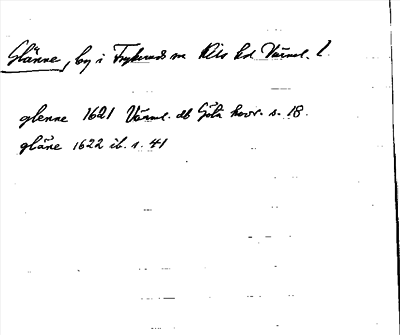 Glänne, by i Frykerud sn Kils hd Värml. l.
glenne 1621 Värml. db Göta hovr. s. 18.
gläne 1622 ib. s. 41